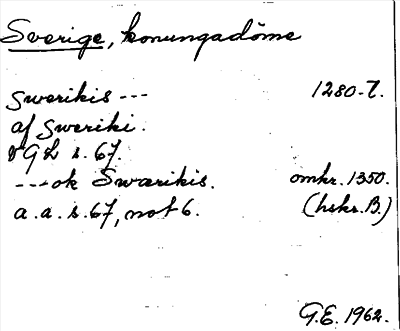 Sverige, konungadöme
Swerikis --- 1280-t.
af Sweriki.
ÖGL s. 67.
--- ok Swærikis. omkr. 1350.
a.a.s. 67, not 6. (hskr. B.)
G.E. 1962.